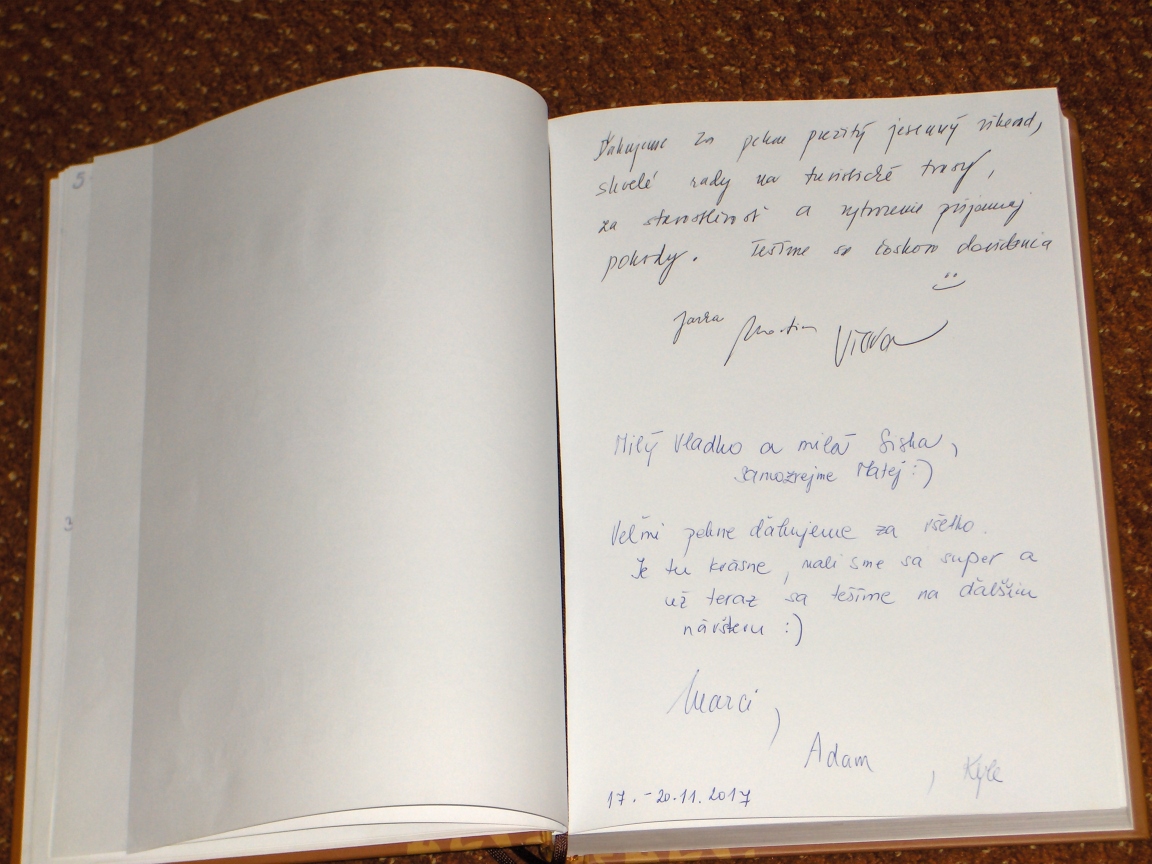 Ďakujeme za pekne prežitý jesenný víkend,
skvelé rady na turistické trasy,
za starostlivosť a vytvorenie príjemnej
pohody. Tešíme sa čoskoro dovidenia
Martin
Milý Vladko a milá Siska,
samozrejme Matej :)
Veľmi pekne ďakujeme za všetko.
Je tu krásne, mali sme sa super a
už teraz sa tešíme na ďalšiu
návštevu :)
Marci,
Adam, Kyle
17. - 20.11.2017
5
3